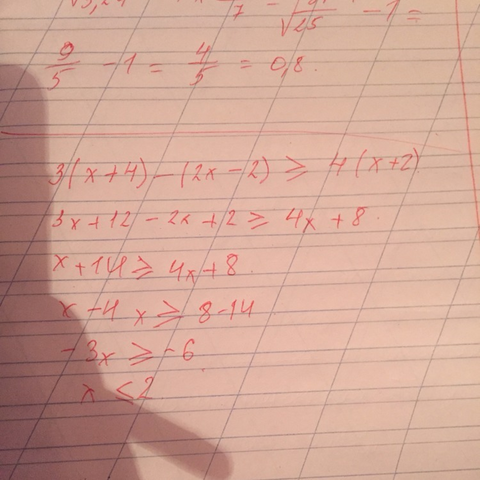 7 √25 - 1 =
9/5 - 1 = 4/5 = 0,8.
3(x+4) - (2x-2) ≥ 4(x+2)
3x+12 - 2x+2 ≥ 4x+8.
x+14 ≥ 4x+8.
x-4x ≥ 8-14
-3x ≥ -6
x < 2